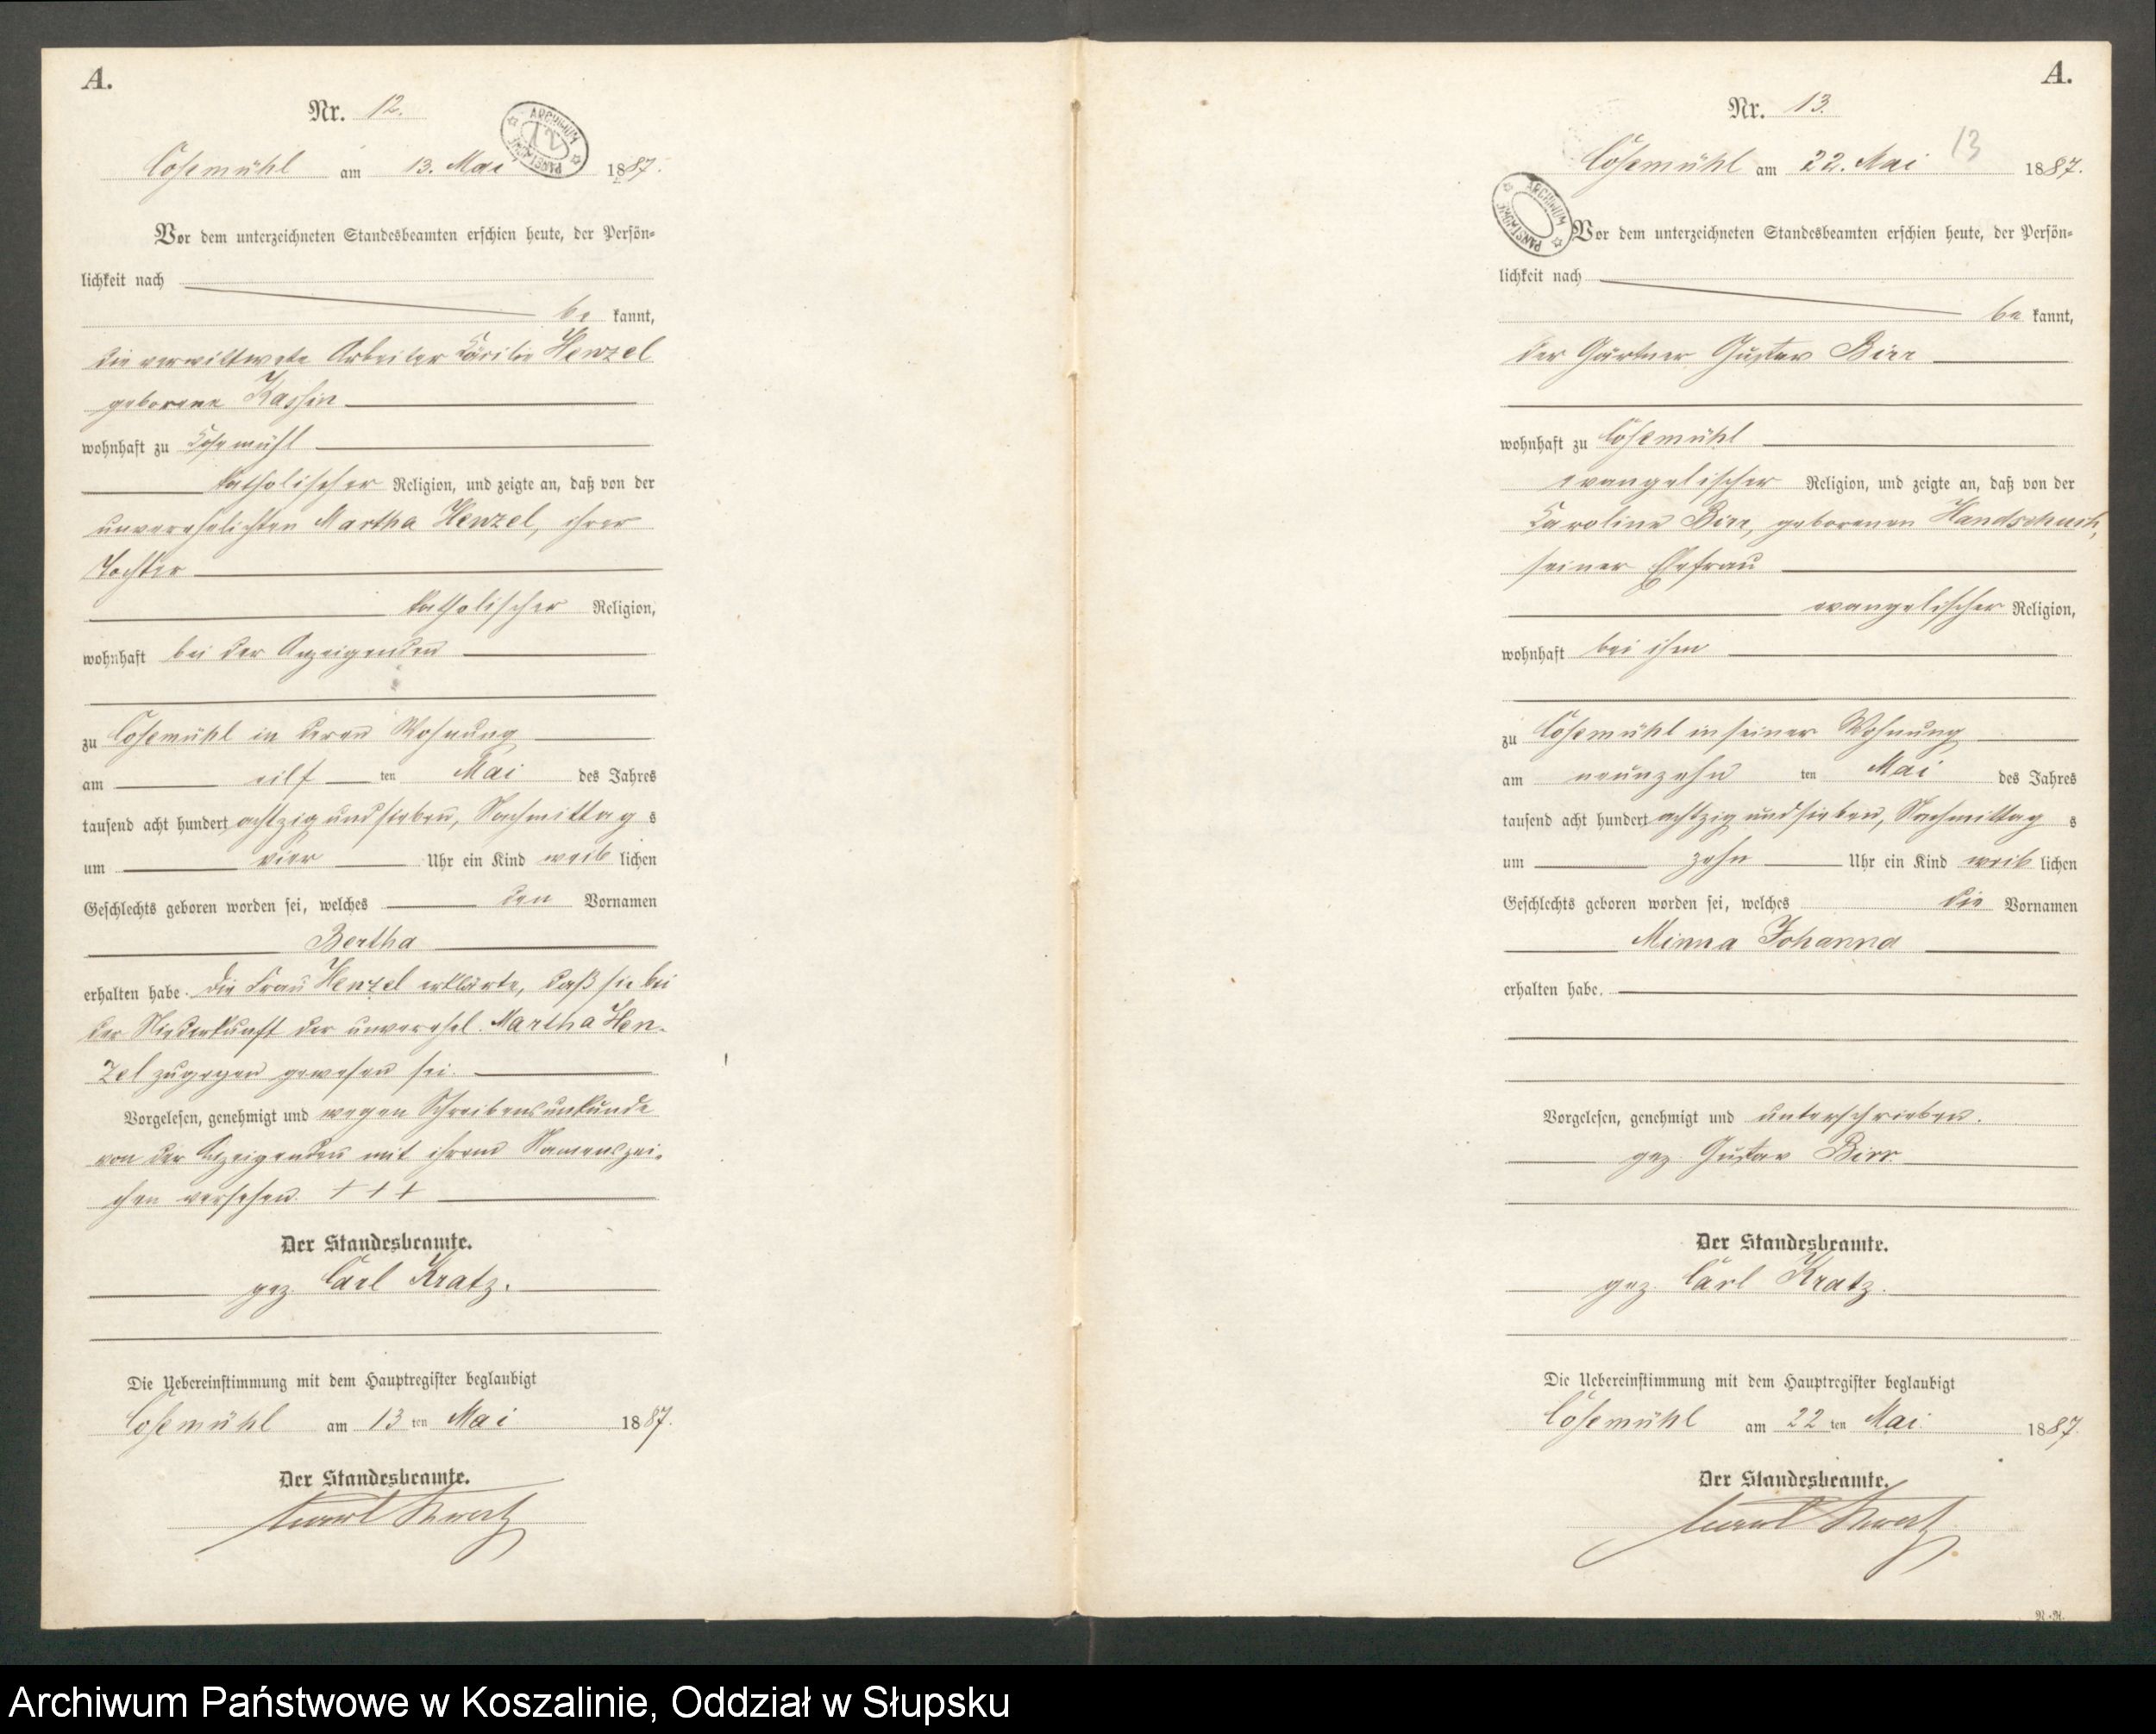 A.
Nr. 12.
ARCHIWUM PAŃSTWOWE
Cosemühl am 13. Mai 1887.
Vor dem unterzeichneten Standesbeamten erschien heute, der Persön-
lichkeit nach
be kannt,
die verwittwete Arbeiter Cäcilie Henzel
geborene Kassin
wohnhaft zu Cosemühl
katholischer Religion, und zeigte an, daß von der
unverehelichten Martha Henzel, ihrer
Tochter
katholischer Religion,
wohnhaft bei der Anzeigenden
zu Cosemühl in deren Wohnung
am eilf ten Mai des Jahres
tausend acht hundert achtzig und sieben, Nachmittag s
um vier Uhr ein Kind weib lichen
Geschlechts geboren worden sei, welches den Vornamen
Bertha
erhalten habe. Die Frau Henzel erklärte, daß sie bei
der Niederkunft der unverehel. Martha Hen-
zel zugegen gewesen sei.
Vorgelesen, genehmigt und wegen Schreibensunkunde
von der Anzeigenden mit ihrem Namenszei-
chen versehen. + + +
Der Standesbeamte.
gez. Carl Kratz.
Die Uebereinstimmung mit dem Hauptregister beglaubigt
Cosemühl am 13 ten Mai 1887.
Der Standesbeamte.
Carl Kratz
A.
Nr. 13.
13
Cosemühl am 22. Mai 1887.
ARCHIWUM PAŃSTWOWE
Vor dem unterzeichneten Standesbeamten erschien heute, der Persön-
lichkeit nach
be kannt,
der Gärtner Gustav Birr
wohnhaft zu Cosemühl
evangelischer Religion, und zeigte an, daß von der
Caroline Birr, geborenen Handschuch,
seiner Ehefrau
evangelischer Religion,
wohnhaft bei ihm
zu Cosemühl in seiner Wohnung
am neunzehn ten Mai des Jahres
tausend acht hundert achtzig und sieben, Nachmittag s
um zehn Uhr ein Kind weib lichen
Geschlechts geboren worden sei, welches die Vornamen
Minna Johanna
erhalten habe.
Vorgelesen, genehmigt und unterschrieben.
gez. Gustav Birr.
Der Standesbeamte.
gez. Carl Kratz.
Die Uebereinstimmung mit dem Hauptregister beglaubigt
Cosemühl am 22 ten Mai 1887.
Der Standesbeamte.
Carl Kratz
Archiwum Państwowe w Koszalinie, Oddział w Słupsku